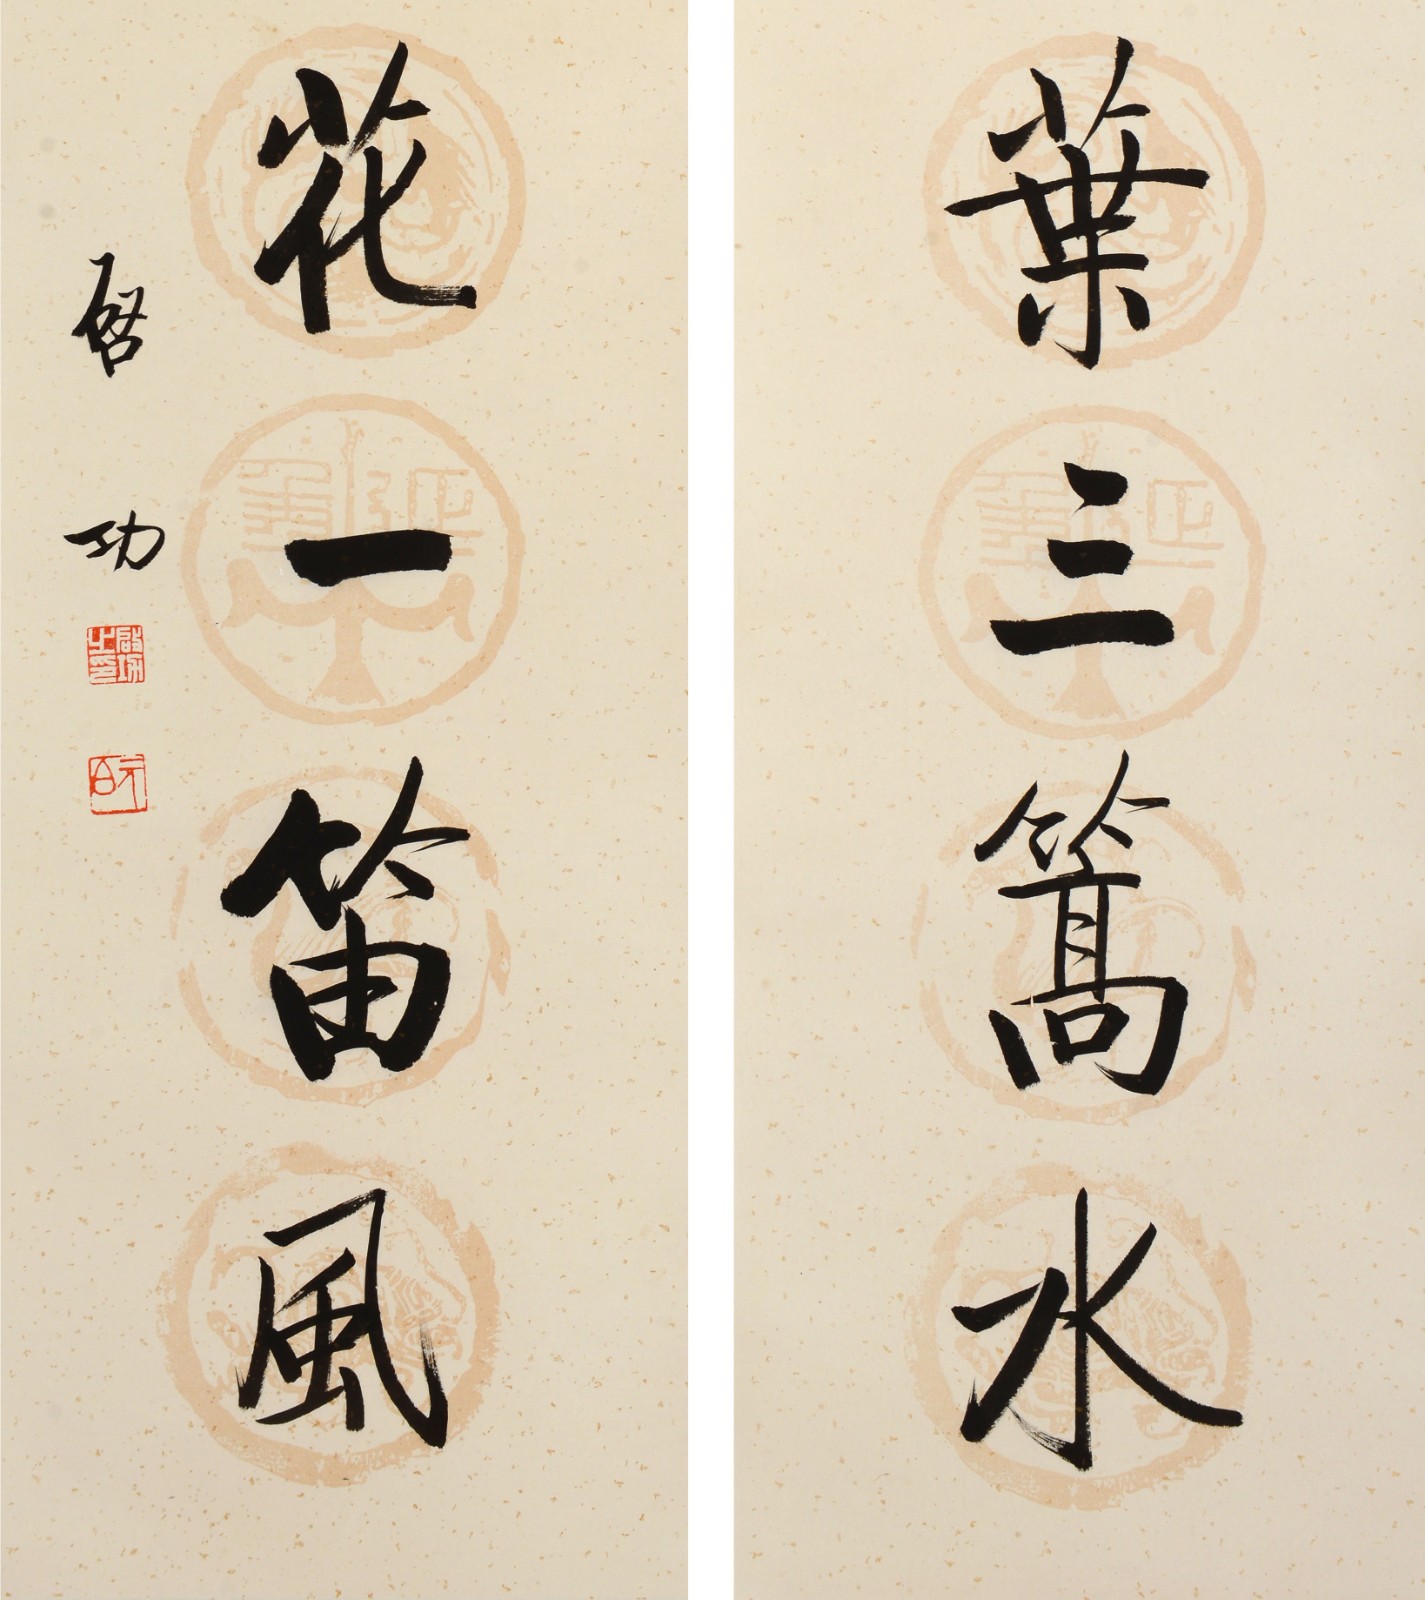 葉三篙水
花一笛風
启功
啟功之印
元白